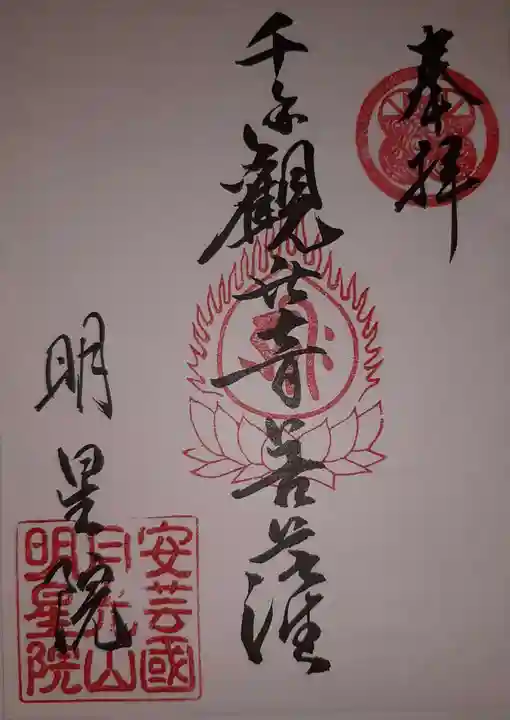 奉拝
千手觀世音菩薩
明星院
安芸國
月光山
明星院